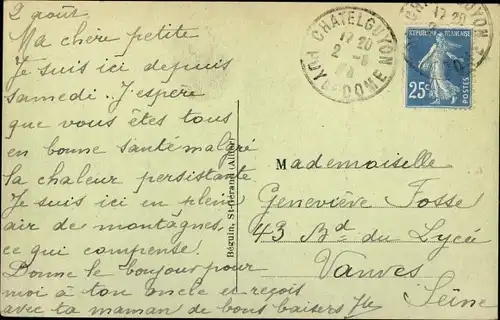 2 août
Ma chère petite
Je suis ici depuis
samedi. J'espère
que vous êtes tous
en bonne santé malgré
la chaleur persistante
Je suis ici en plein
air de montagnes,
ce qui compense.
Donne le bonjour pour
moi à ton oncle et reçois
avec ta maman de bons baisers
Béguin, St-Gérand (Allier)
CHATELGUYON
17 20
2 -8
PUY DE DOME
REPUBLIQUE FRANÇAISE
25c
POSTES
Mademoiselle
Geneviève Fosse
43 Bd du Lycée
Vanves
Seine